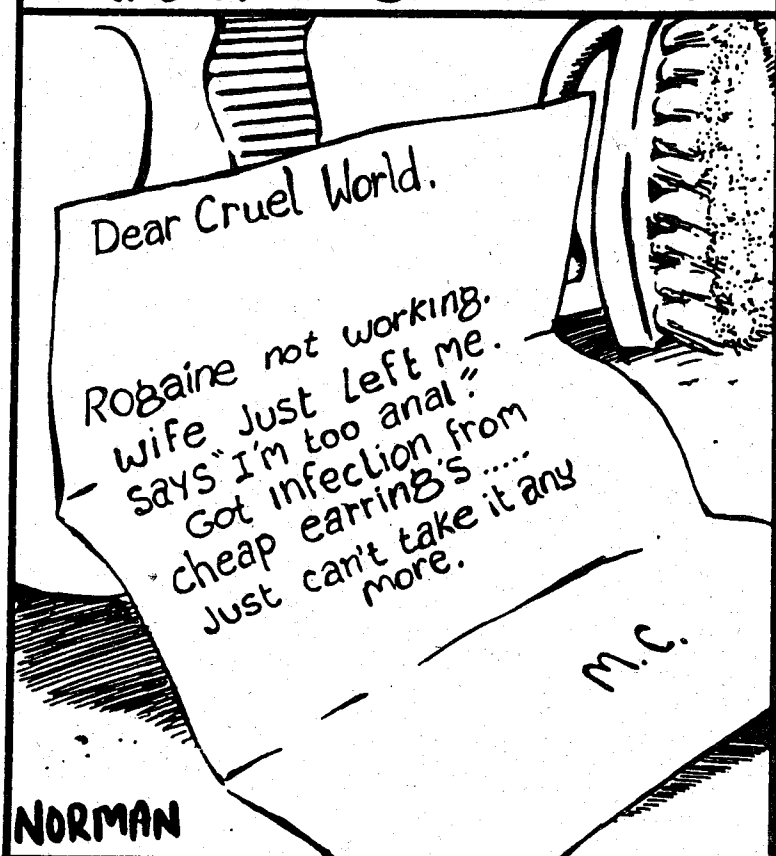 Dear Cruel World.
Rogaine not working.
wife Just Left me.
says "I'm too anal".
Got infection from
cheap earring's.....
Just can't take it any
more.
M.C.
NORMAN